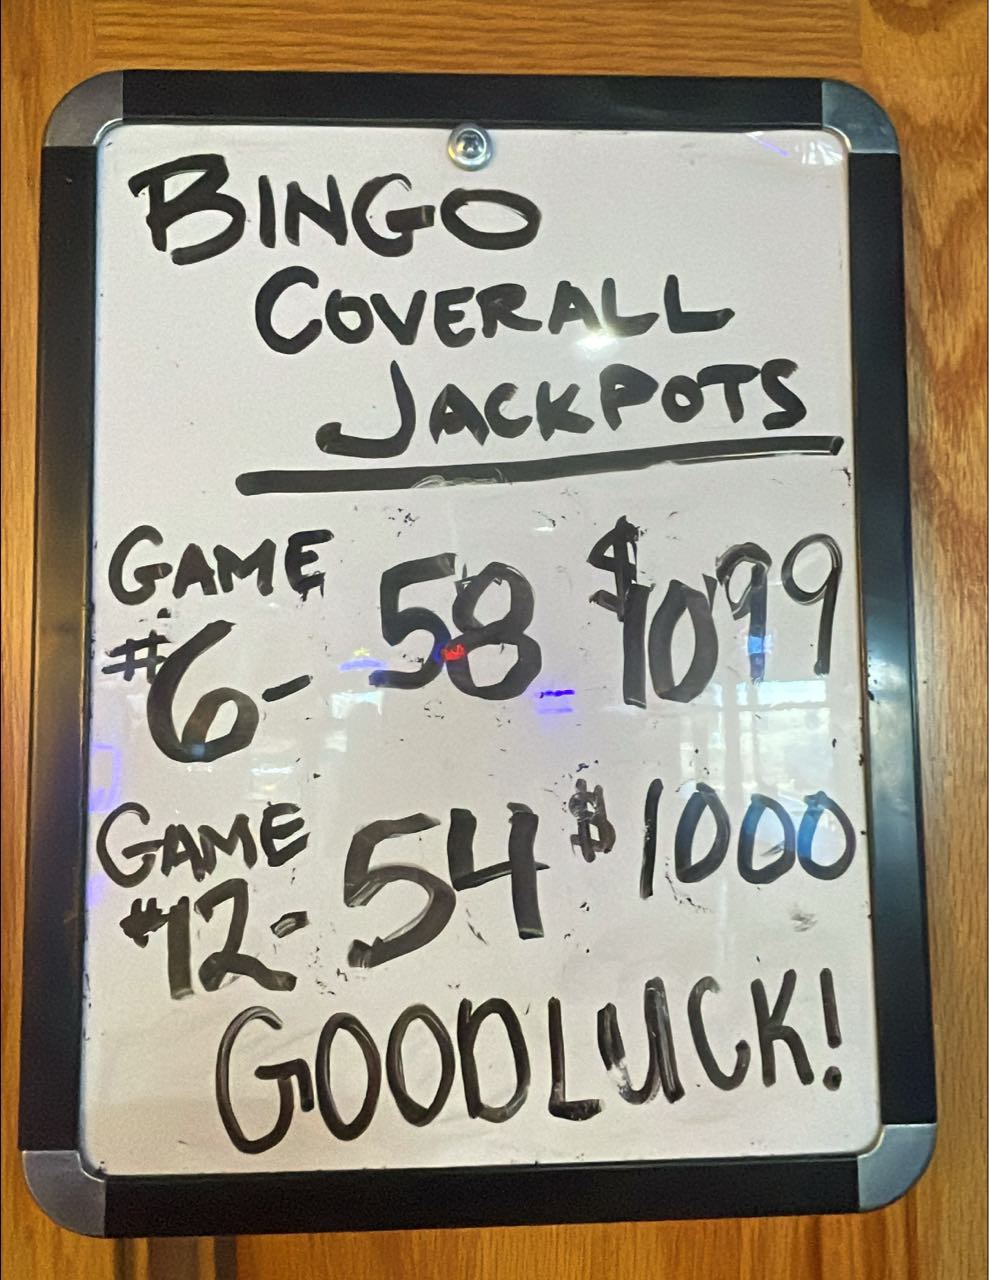 BINGO
COVERALL
JACKPOTS
GAME
#6- 58 $1099
GAME
#12- 54 $1000
GOOD LUCK!